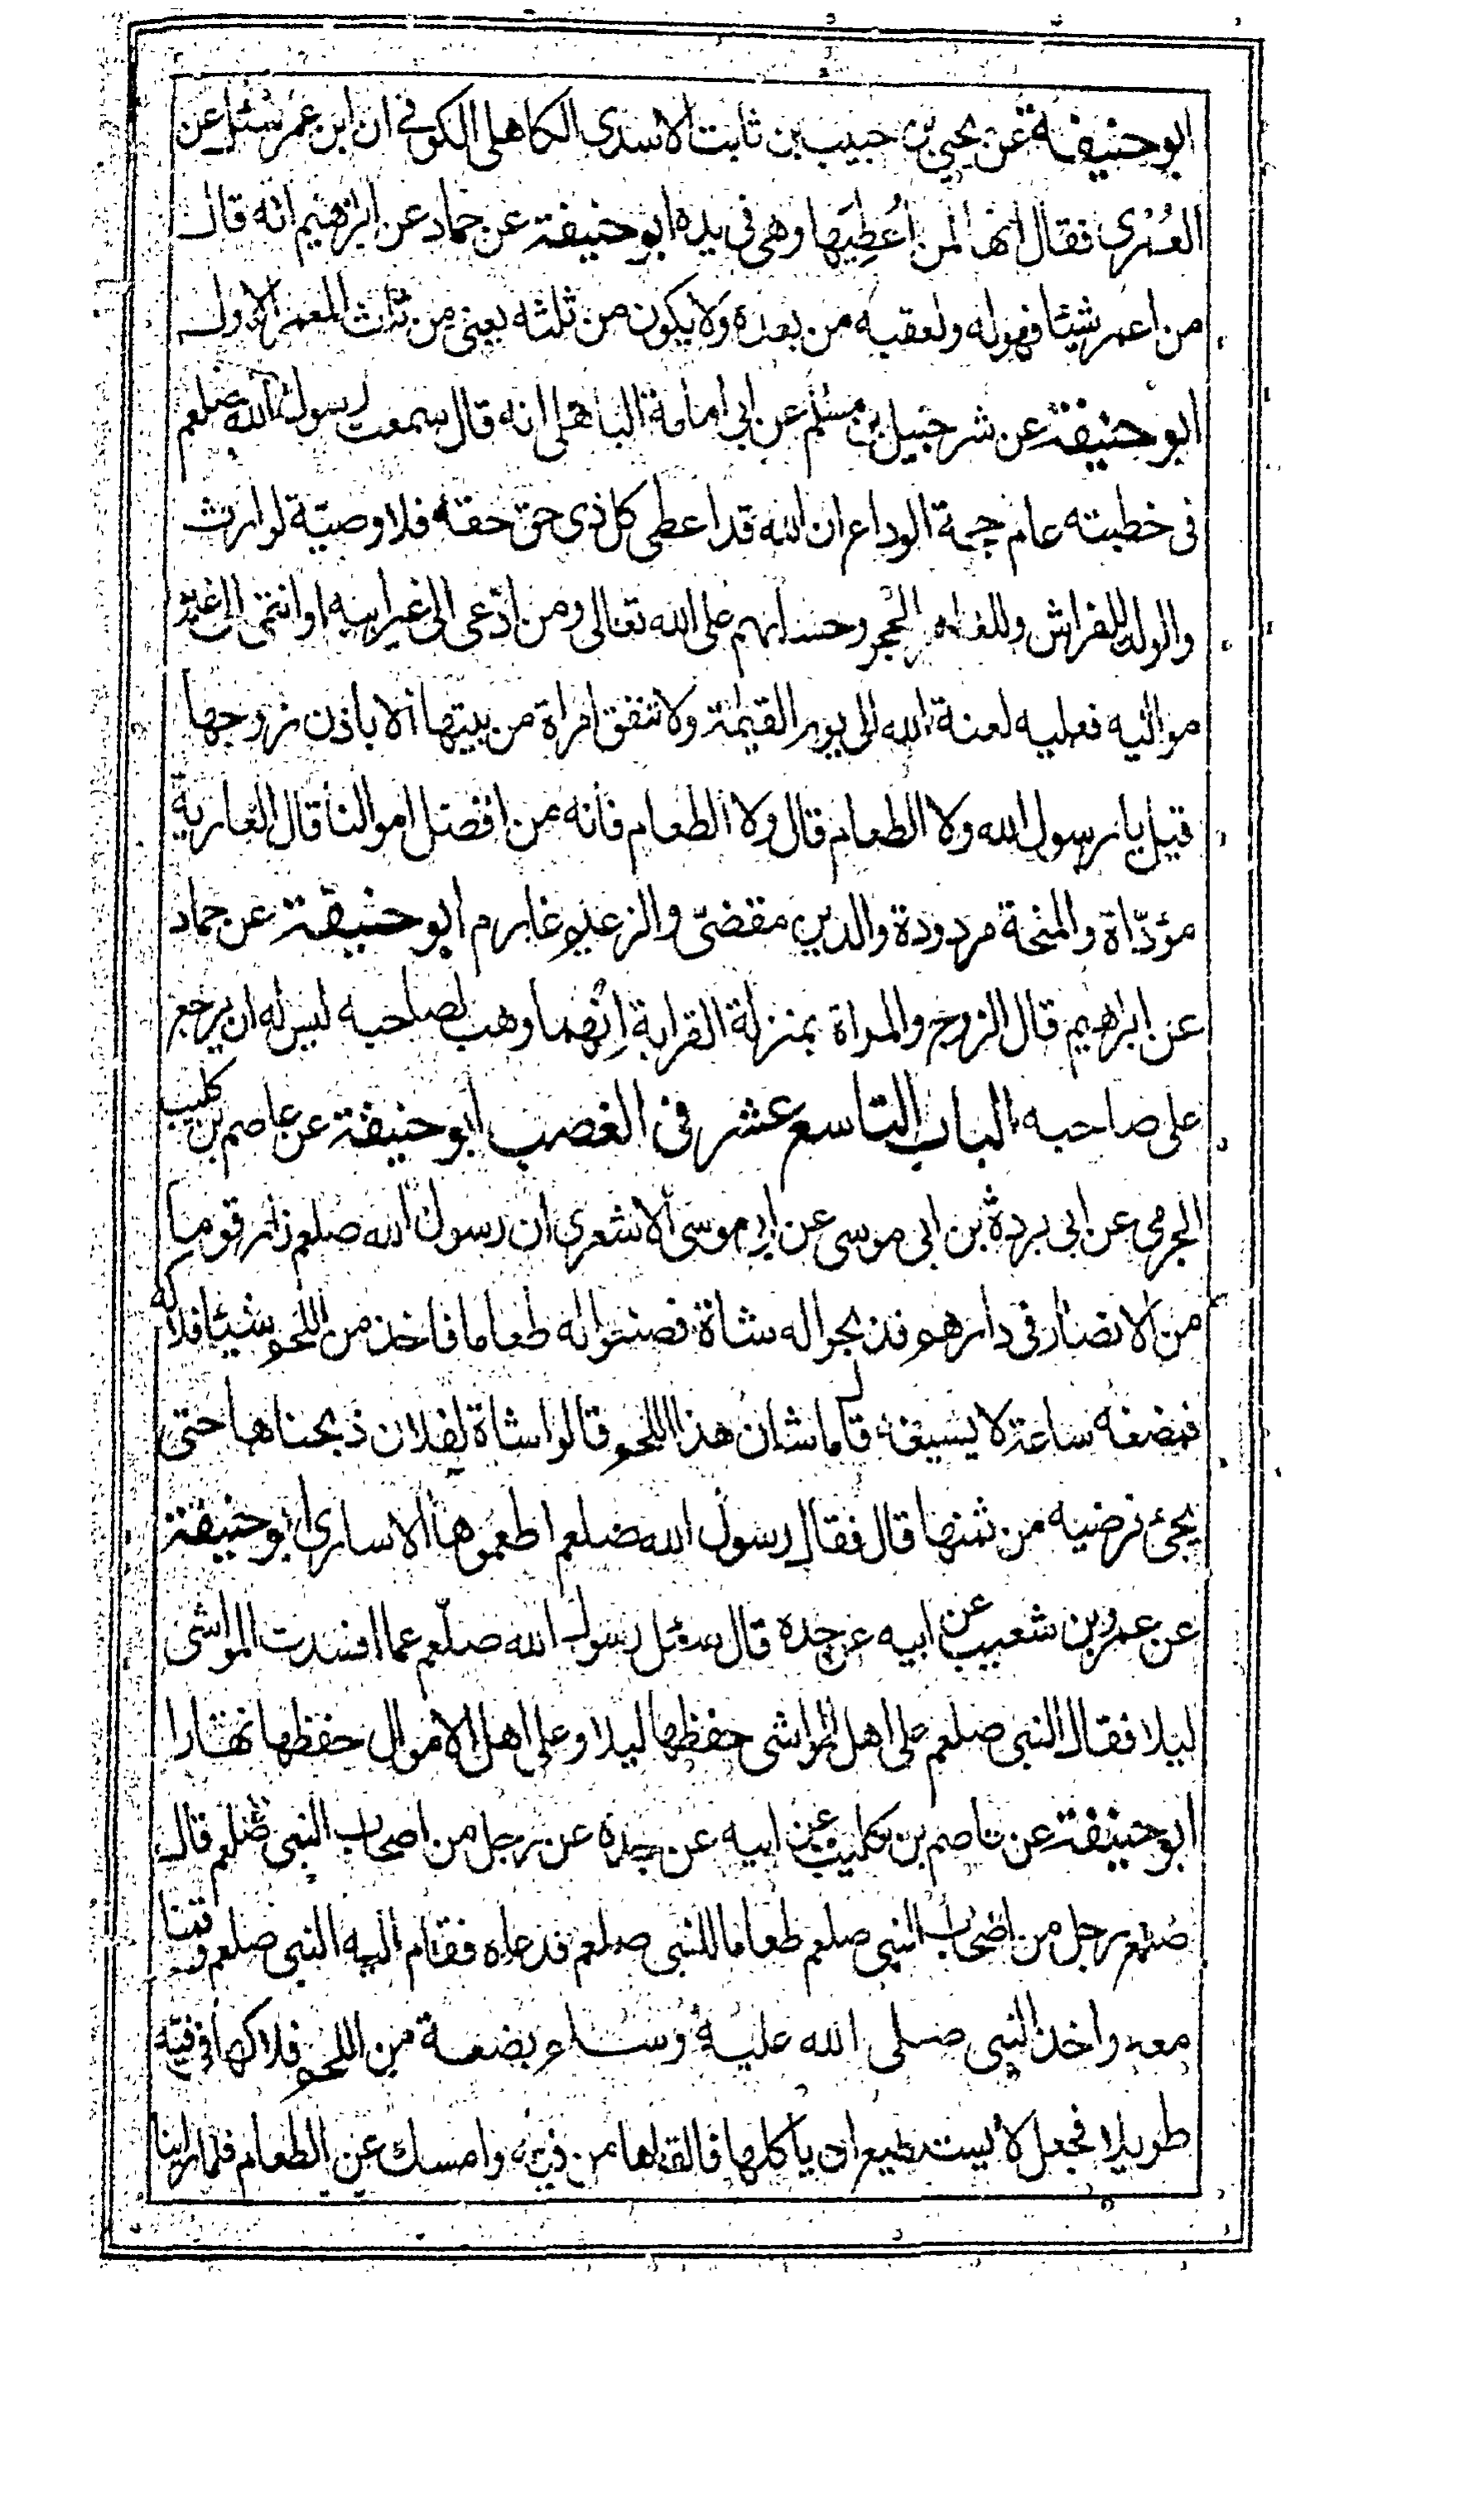 ابو حنيفة عن يحيى بن حبيب بن ثابت الاسدى الكاهلى الكوفى ان ابن عمر سئل عن
العُمْرى فقال انها لمن اُعطِيَها وهى فى يده ابو حنيفة عن حماد عن ابرٰهيم انه قال
من اعمر شيئا فهو له ولعقبه من بعده ولا يكون من ثلثه يعنى من ثلث المعمر الاول
ابو حنيفة عن شرحبيل بن مسلم عن ابى امامة الباهلى انه قال سمعت رسول الله صلعم
فى خطبته عام حجة الوداع ان الله قد اعطى كل ذى حق حقه فلا وصيّة لوارث
والولد للفراش وللعاهر الحجر وحسابهم على الله تعالى ومن ادّعى الى غير ابيه او انتمى الى غير
مواليه فعليه لعنة الله الى يوم القيٰمة ولا تنفق امراة من بيتها الا باذن زوجها
قيل يا رسول الله ولا الطعام قال ولا الطعام فانه من افضل اموالنا قال العارية
مؤدّاة والمنحة مردودة والدين مقضىّ والزعيم غارم ابو حنيفة عن حماد
عن ابرهيم قال الزوج والمراة بمنزلة القرابة ايّهما وهب لصاحبه ليس له ان يرجع
على صاحبه الباب التاسع عشر فى الغصب ابو حنيفة عن عاصم بن كليب
الجرمى عن ابى بردة بن ابى موسى عن ابى موسى الاشعرى ان رسول الله صلعم زار قوما
من الانصار فى دارهم فذبحوا له شاة فصنعوا له طعاما فاخذ من اللحم شيئا فلاكه
فمضغه ساعة لا يسيغه قال ما شان هذا اللحم قالوا شاة لفلان ذبحناها حتى
يجئ نرضيه من ثمنها قال فقال رسول الله صلعم اطعموها الاسارى ابو حنيفة
عن عمرو بن شعيب عن ابيه عن جده قال سئل رسول الله صلّعم عما افسدت المواشى
ليلا فقال النبى صلعم على اهل المواشى حفظها ليلا وعلى اهل الاموال حفظها نهارا
ابو حنيفة عن عاصم بن كليب عن ابيه عن جده عن رجل من اصحاب النبى صلعم قال
صنع رجل من اصحاب النبى صلعم طعاما للنبى صلعم فدعاه فقام اليه النبى صلعم وقمنا
معه واخذ النبى صلى الله عليه وسلم بضعة من اللحم فلاكها فى فيه
طويلا فجعل لا يستطيع ان ياكلها فالقاها من فيه وامسك عن الطعام فلما راينا